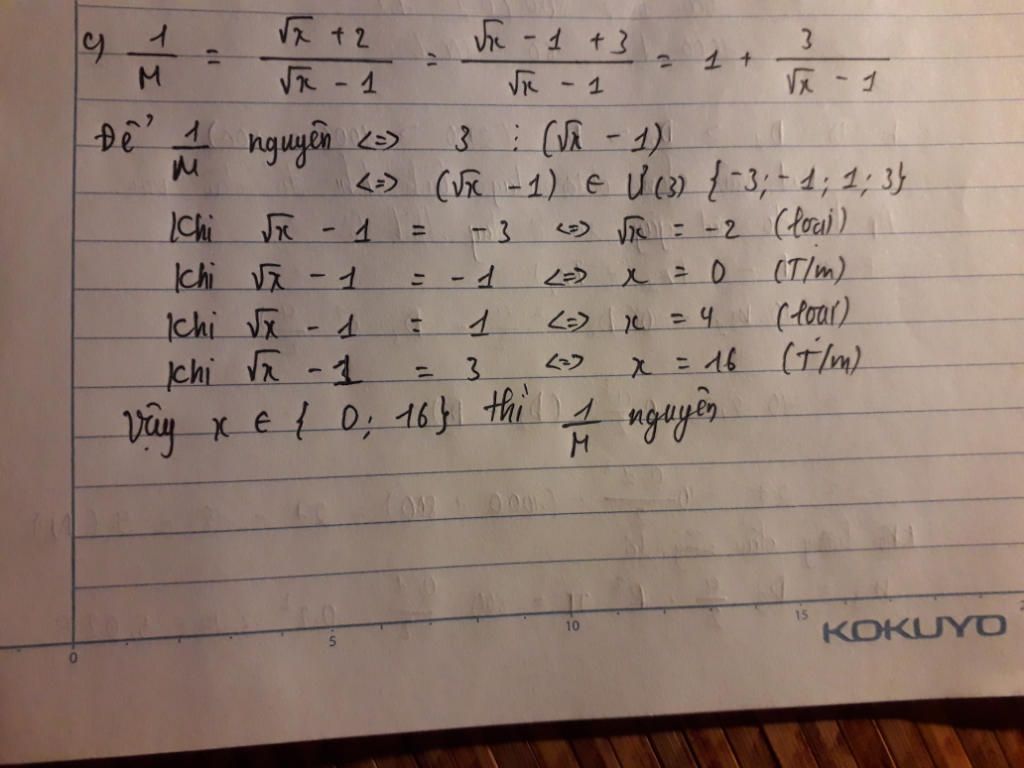 c) 1/M = (√x + 2)/(√x - 1) = (√x - 1 + 3)/(√x - 1) = 1 + 3/(√x - 1)
Để 1/M nguyên <=> 3 ⋮ (√x - 1)
<=> (√x - 1) ∈ Ư(3) {-3; -1; 1; 3}
Khi √x - 1 = -3 <=> √x = -2 (loại)
Khi √x - 1 = -1 <=> x = 0 (T/m)
Khi √x - 1 = 1 <=> x = 4 (loại)
Khi √x - 1 = 3 <=> x = 16 (T/m)
Vậy x ∈ { 0; 16} thì 1/M nguyên
0 5 10 15 KOKUYO